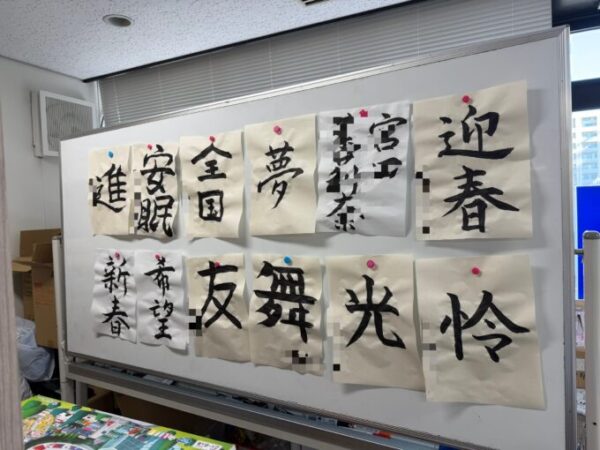 進
安眠
全国
夢
宮工
茉莉奈
迎春
新春
希望
友
舞
光
怜